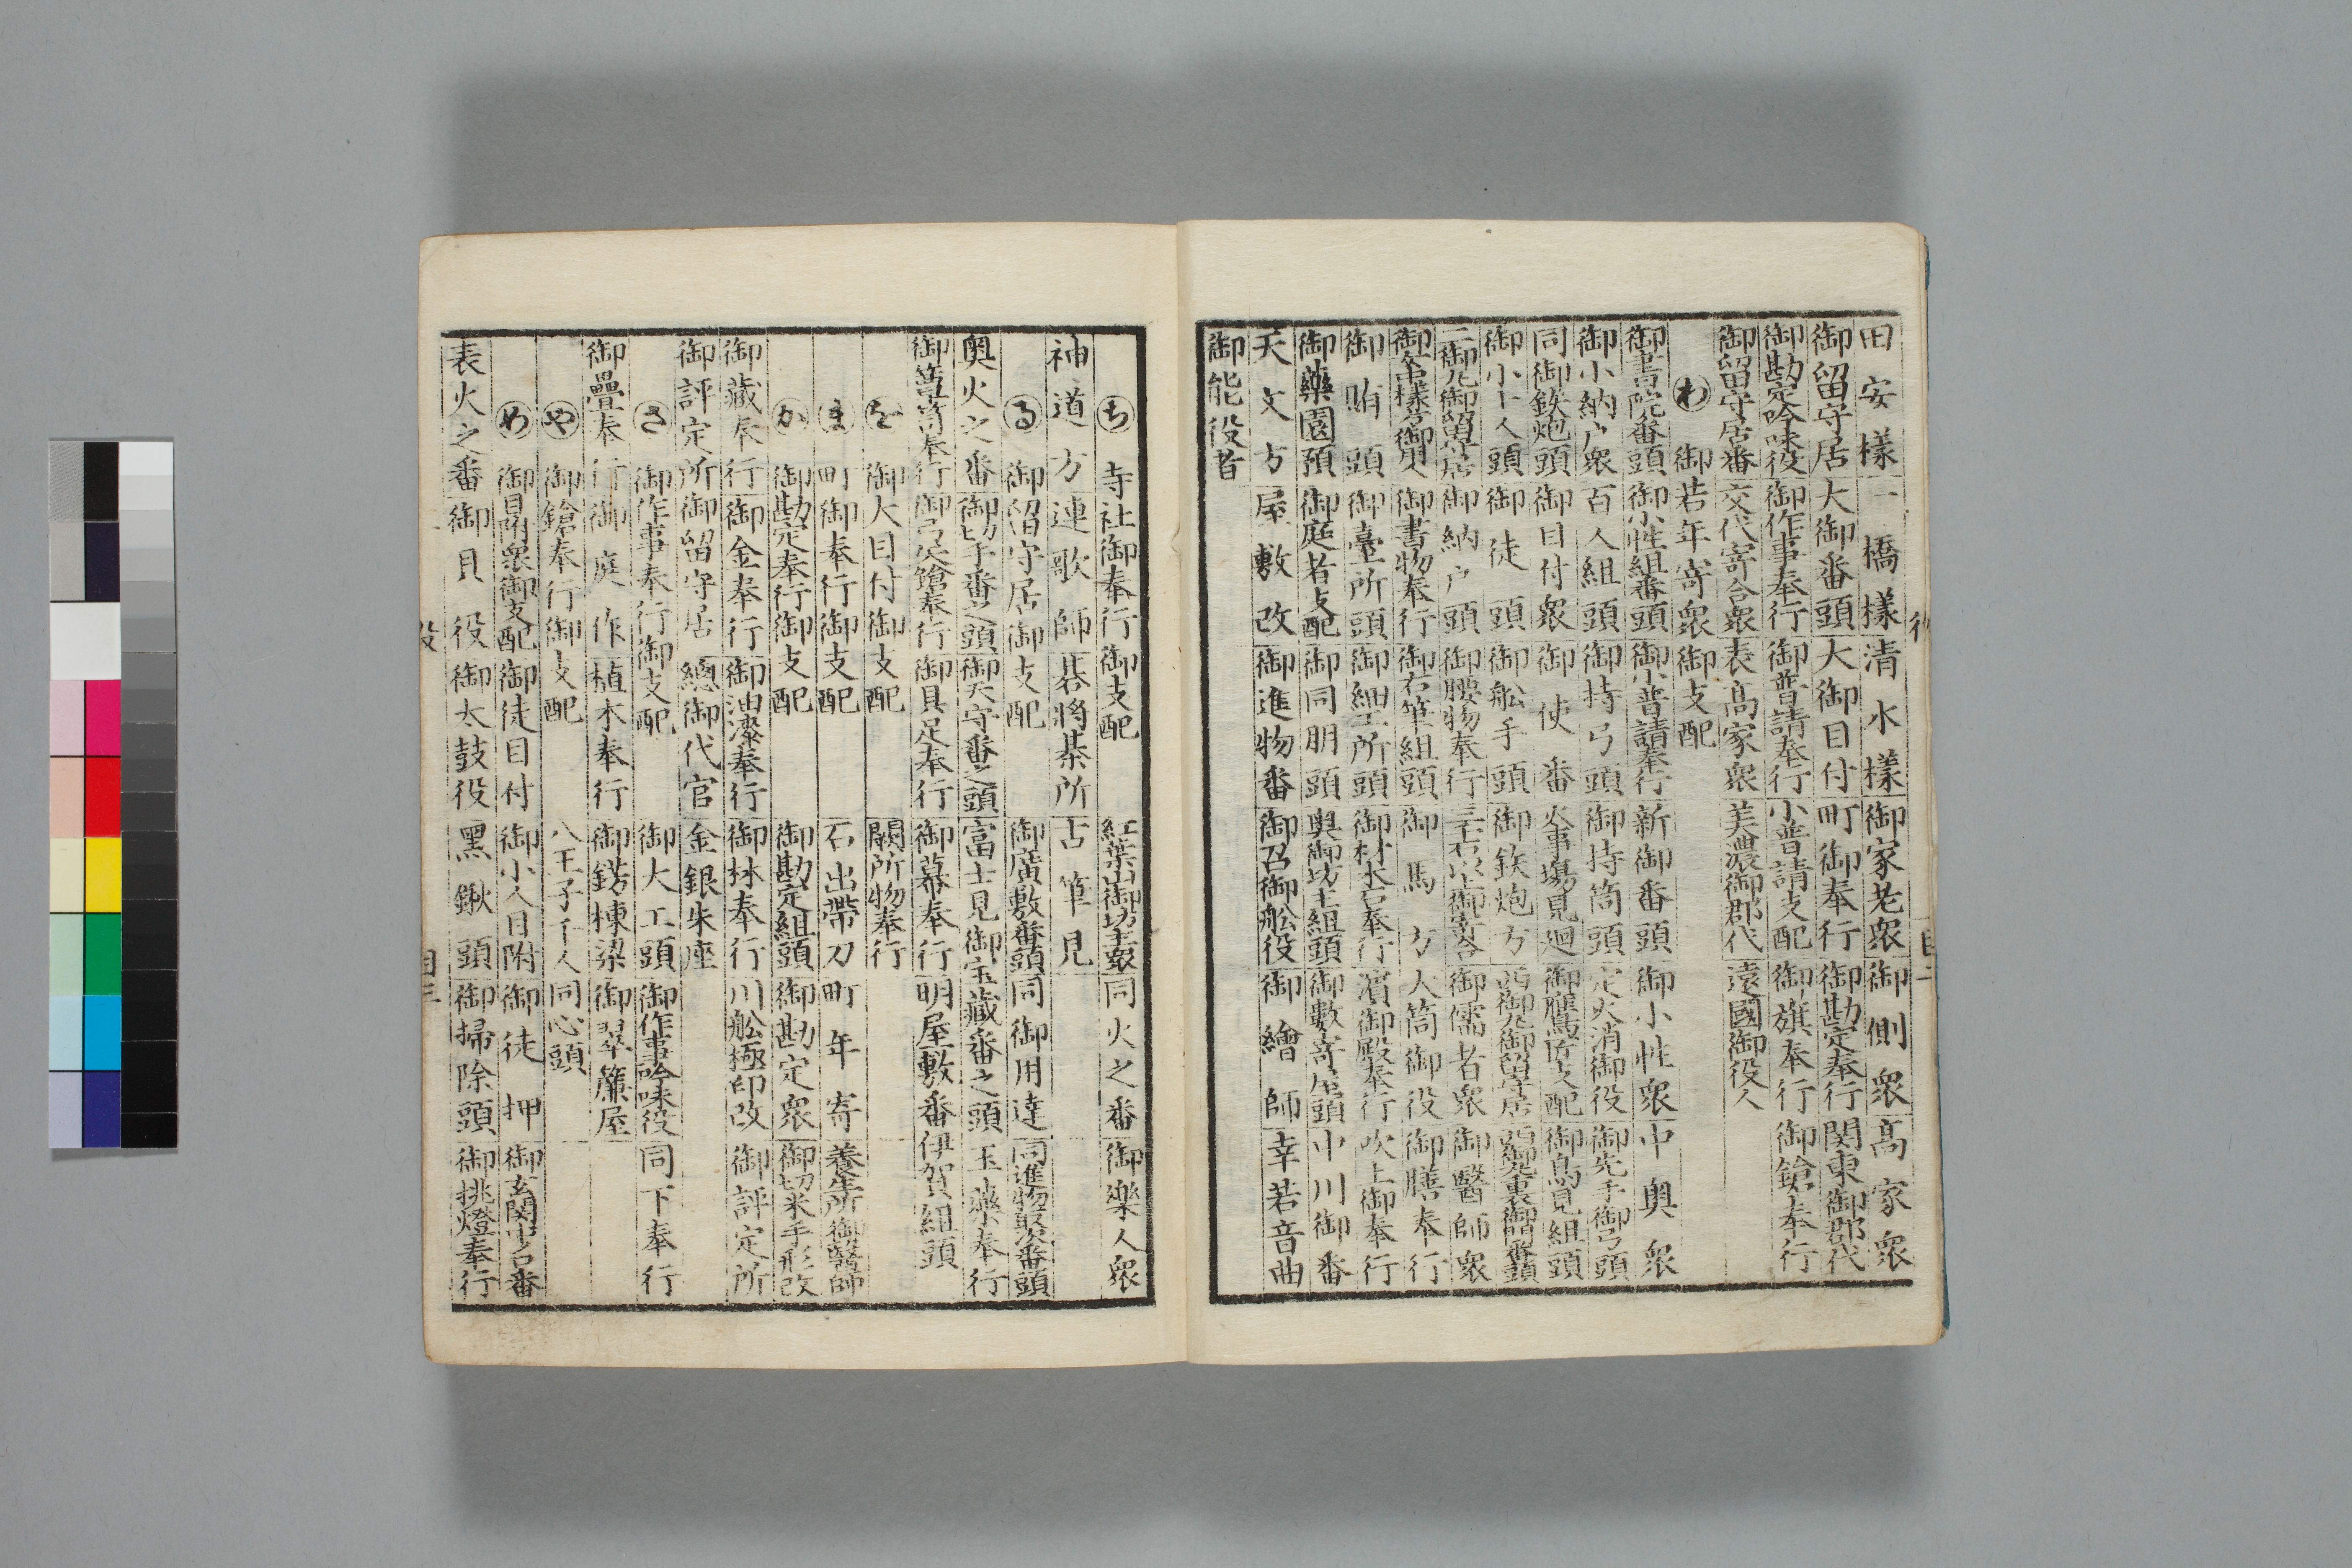 田安様 一橋様 清水様 御家老衆 御側衆 高家衆
御留守居 大御番頭 大御目付 町御奉行 御勘定奉行 関東御郡代
御勘定吟味役 御作事奉行 御普請奉行 小普請支配 御旗奉行 御鎗奉行
御留守居番 交代寄合衆 表高家衆 美濃御郡代 遠國御役人
わ 御若年寄衆御支配
御書院番頭 御小性組番頭 御小普請奉行 新御番頭 御小性衆 中奥衆
御小納戸衆 百人組頭 御持弓頭 御持筒頭 定火消御役 御先手御弓頭
同御鉄炮頭 御目付衆 御使番 火事場見廻 御鷹匠支配 御鳥見組頭
御小十人頭 御徒頭 御舩手頭 御鉄炮方 西御丸御留守居 西御丸裏御門番頭
二御丸御留守居 御納戸頭 御腰物奉行 三千石以上御寄合 御儒者衆 御醫師衆
御書物奉行 御右筆組頭 御馬方 大筒御役 御膳奉行
御賄頭 御臺所頭 御細工所頭 御材木石奉行 濱御殿奉行 吹上御奉行
御藥園預 御庭者支配 御同朋頭 奥御坊主組頭 御數寄屋頭 中川御番
天文方 屋敷改 御進物番 御召御舩役 御繪師 幸若音曲
御能役者
ち 寺社御奉行御支配 紅葉山御坊主衆 同火之番 御樂人衆
神道方 連歌師 碁將棊所 古筆見
る 御留守居御支配 御廣敷番頭 同御用達 同進物取次番頭
奥火之番 御切手番之頭 御天守番之頭 富士見御宝藏番之頭 玉藥奉行
御簞笥奉行 御弓矢鎗奉行 御具足奉行 御幕奉行 明屋敷番伊賀組頭
を 御大目付御支配 闕所物奉行
ま 町御奉行御支配 石出帶刀 町年寄 養生所御醫師
か 御勘定奉行御支配 御勘定組頭 御勘定衆 御切米手形改
御藏奉行 御金奉行 御油漆奉行 御林奉行 川舩極印改 御評定所
御評定所御留守居 總御代官 金銀朱座
さ 御作事奉行御支配 御大工頭 御作事吟味役 同下奉行
御疊奉行 御庭作 植木奉行 御錺棟梁 御翠簾屋
や 御鎗奉行御支配 八王子千人同心頭
め 御目附衆御支配 御徒目付 御小人目附 御徒押 御玄関中之口番
表火之番 御貝役 御太鼓役 黒鍬頭 御掃除頭 御挑燈奉行